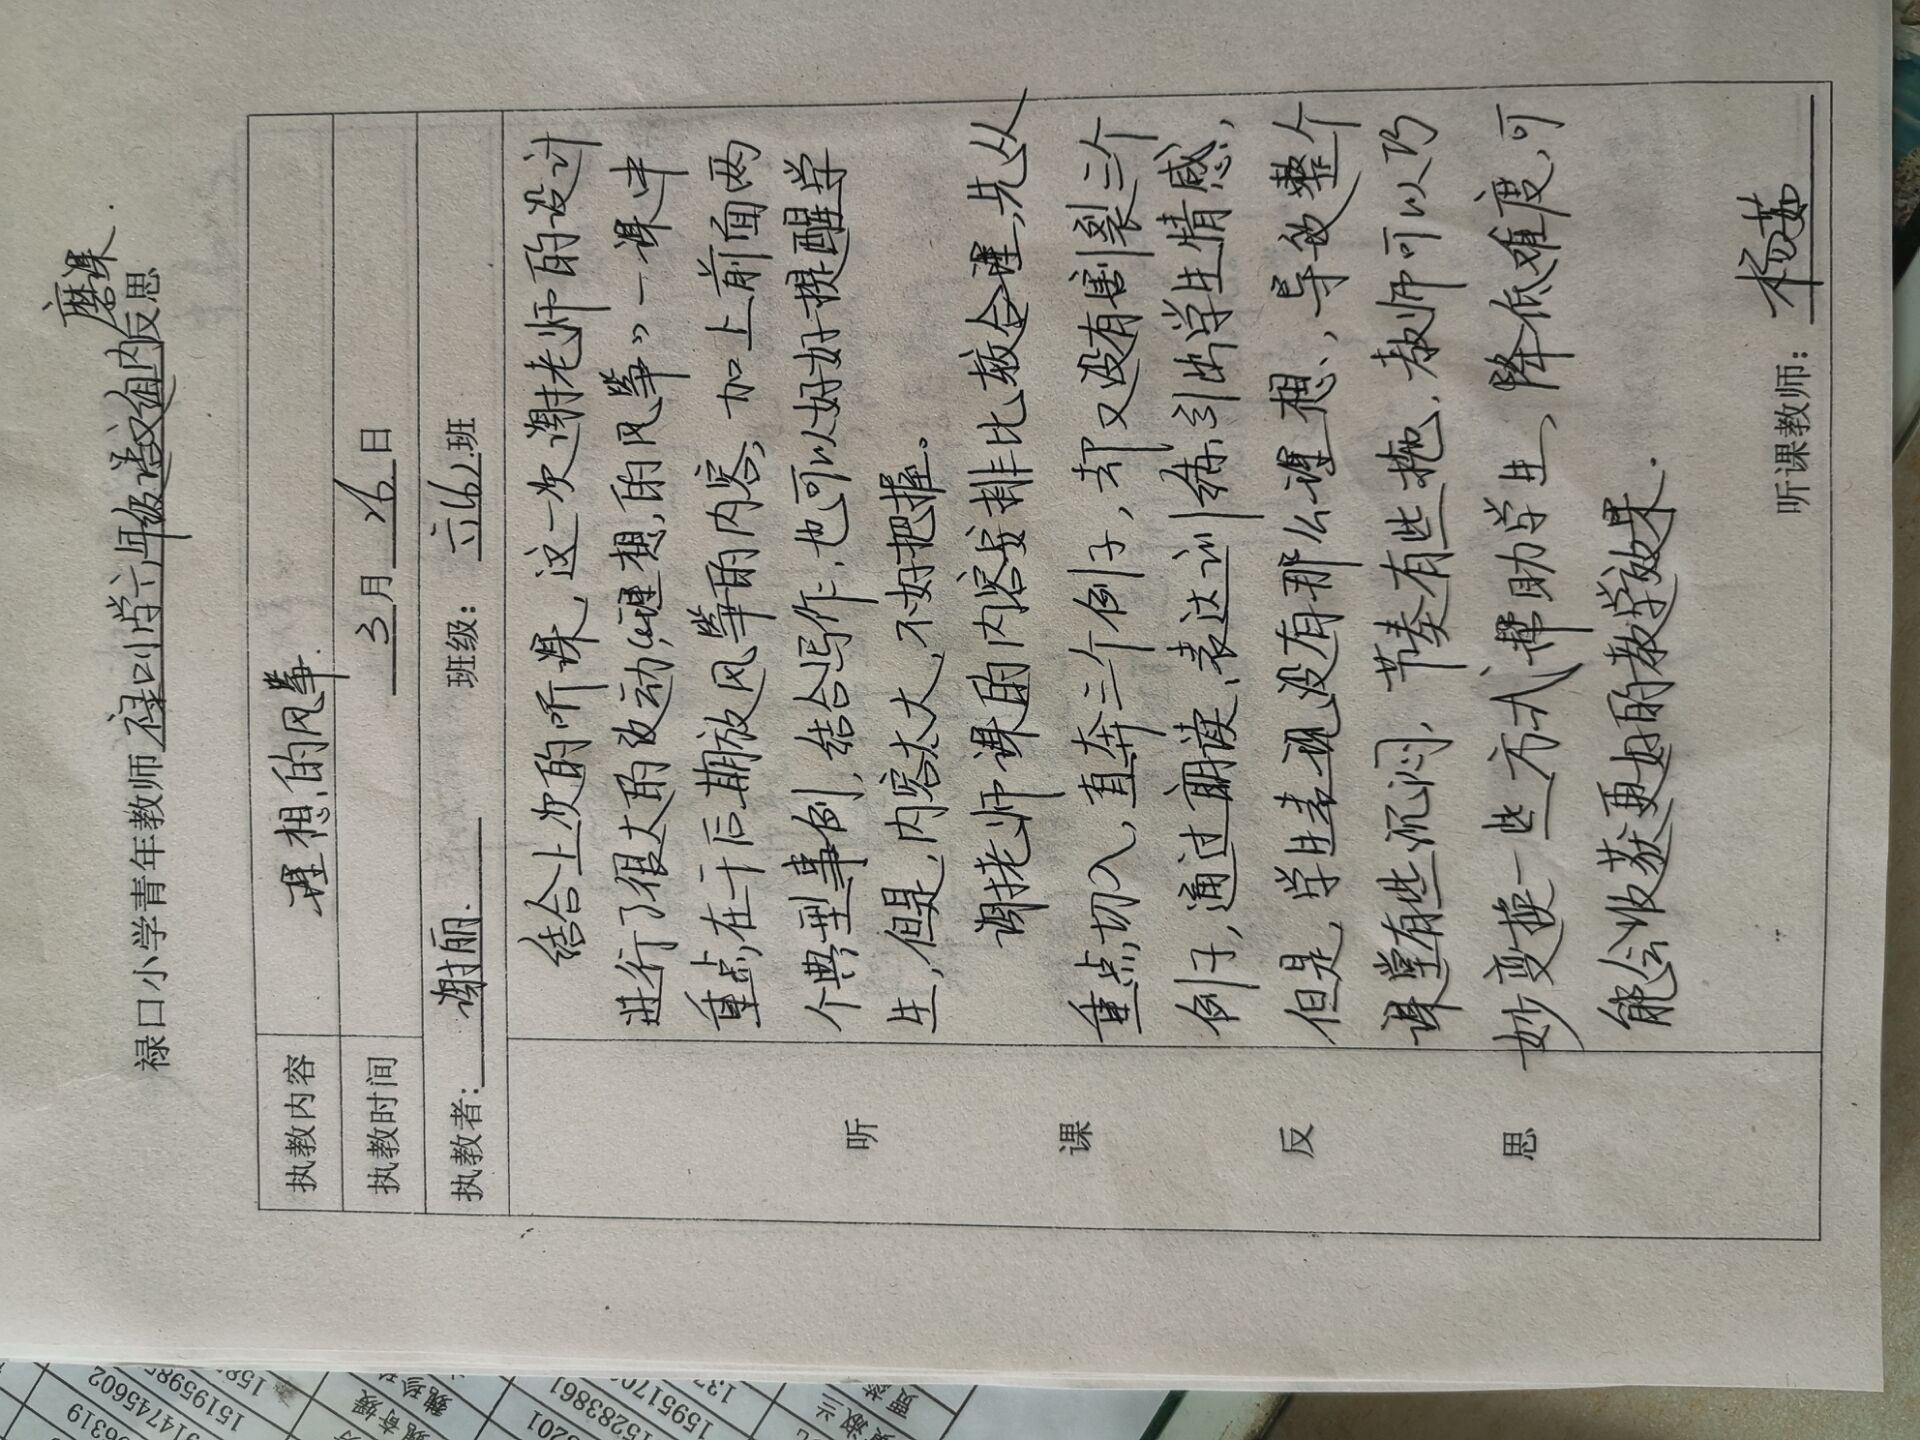 磨课
禄口小学青年教师禄口小学六年级语文组内反思
执教内容 理想的风筝.
执教时间 3月26日
执教者:谢丽. 班级:六(6)班
听课反思
结合上次的听课,这一次谢老师的设计
进行了很大的改动,《理想的风筝》一课中
重点在于后期放风筝的内容,加上前面两
个典型事例,结合写作,也可以好好提醒学
生,但是,内容太大,不好把握。
谢老师课的内容安排比较合理,先从
重点切入,直奔三个例子,却又没有割裂三个
例子,通过朗读、表达训练引出学生情感,
但是,学生表现没有那么理想,导致整个
课堂有些沉闷,节奏有些拖.教师可以巧
妙变换一些方式帮助学生、降低难度,可
能会收获更好的教学效果.
听课教师:杨茹
15195985
9147745602
96319
魏奇媛
15283861
3201